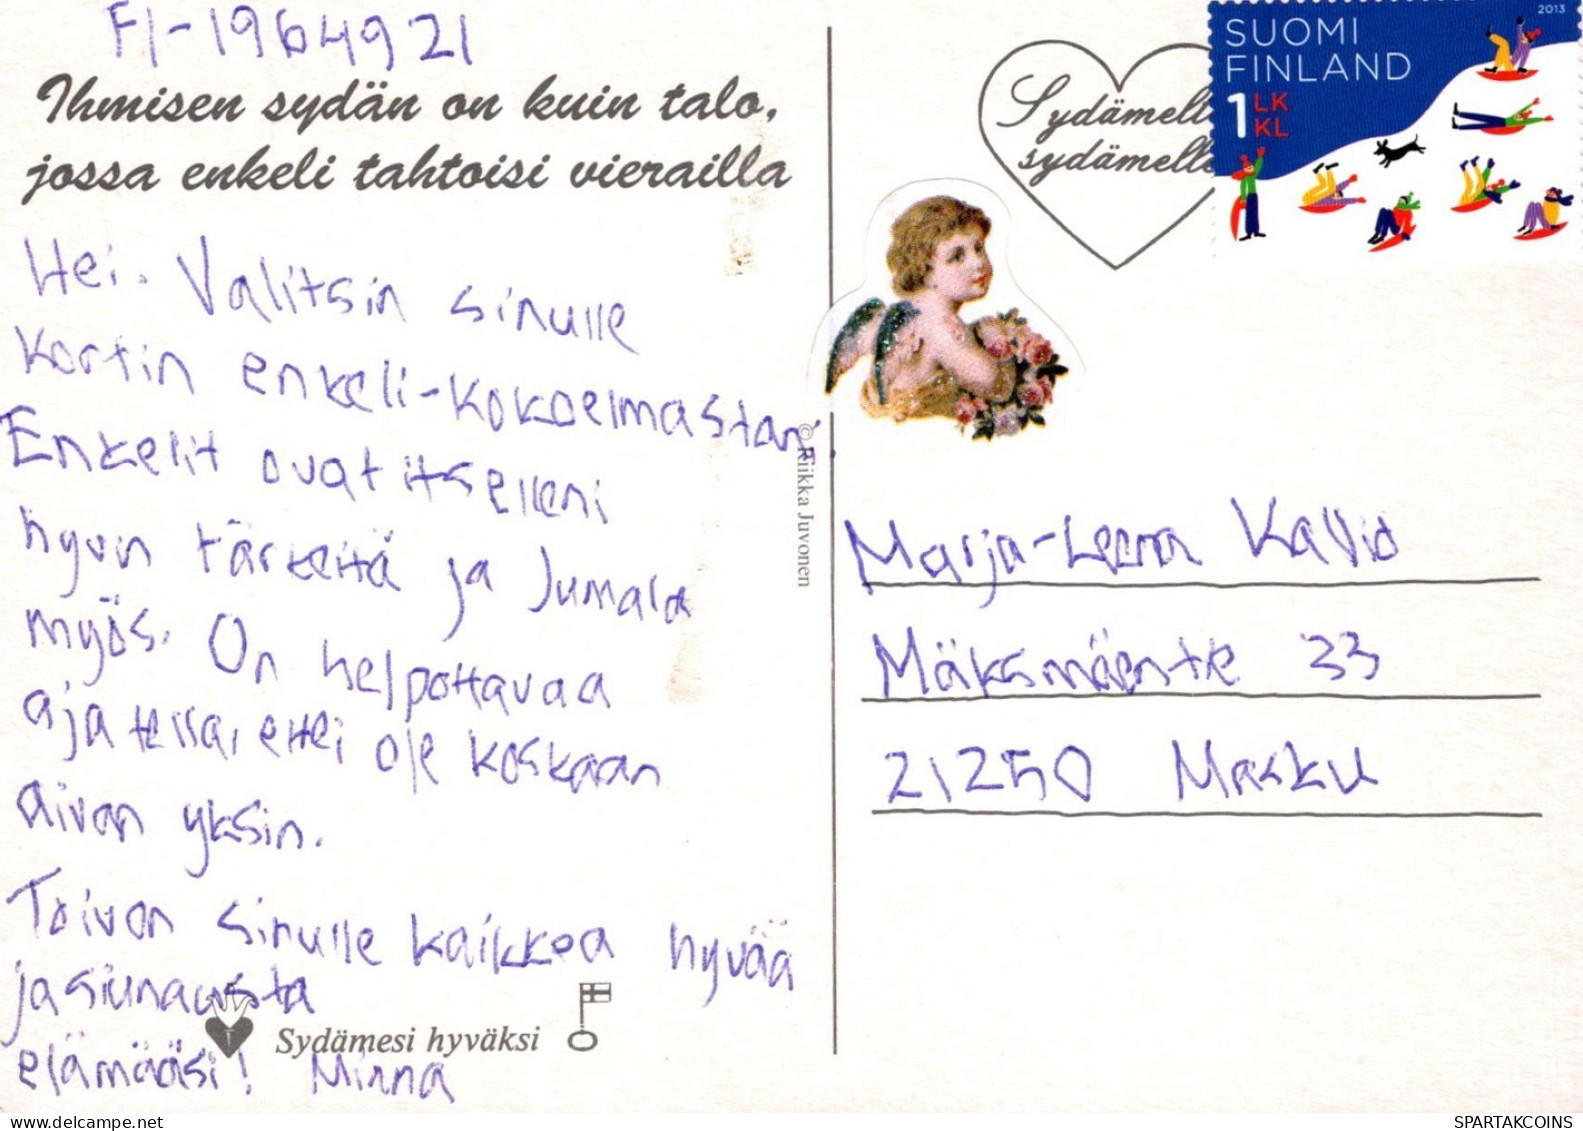 FI-1964921
Ihmisen sydän on kuin talo,
jossa enkeli tahtoisi vierailla
Hei. Valitsin sinulle
kortin enkeli-kokoelmastani.
Enkelit ovat itselleni
hyvin tärkeitä ja Jumala
myös. On helpottavaa
ajatella, ettei ole koskaan
aivan yksin.
Toivon sinulle kaikkea hyvää
ja siunausta
elämääsi! Minna
Sydämesi hyväksi
© Riikka Juvonen
Sydämell
sydämelle
2013
SUOMI
FINLAND
1 LK
KL
Marja-Leena Kallio
Mäksmäentie 33
21250 Masku
SPARTAKCOINS